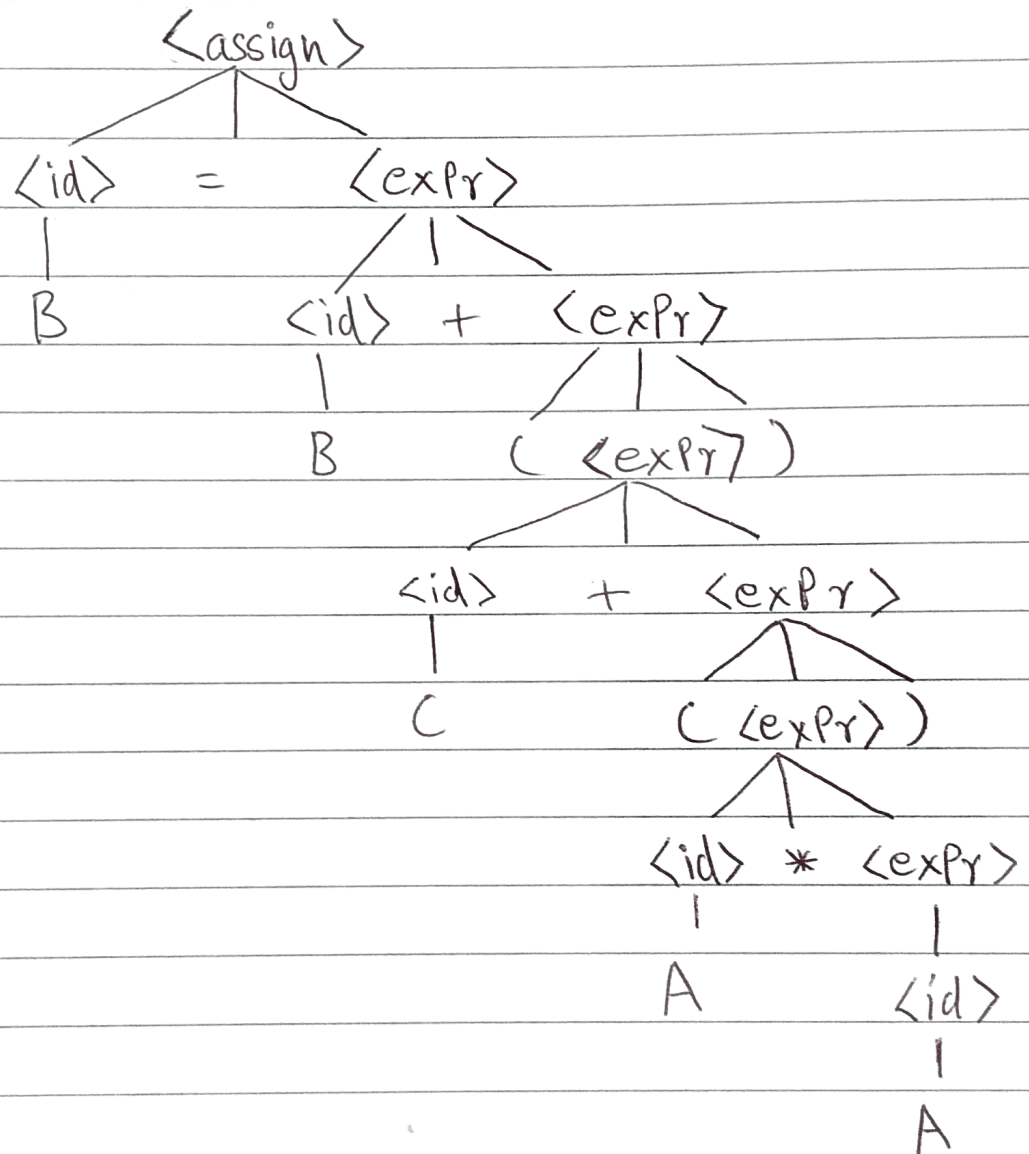 <assign>
<id> = <expr>
B <id> + <expr>
B ( <expr> )
<id> + <expr>
C ( <expr> )
<id> * <expr>
A <id>
A